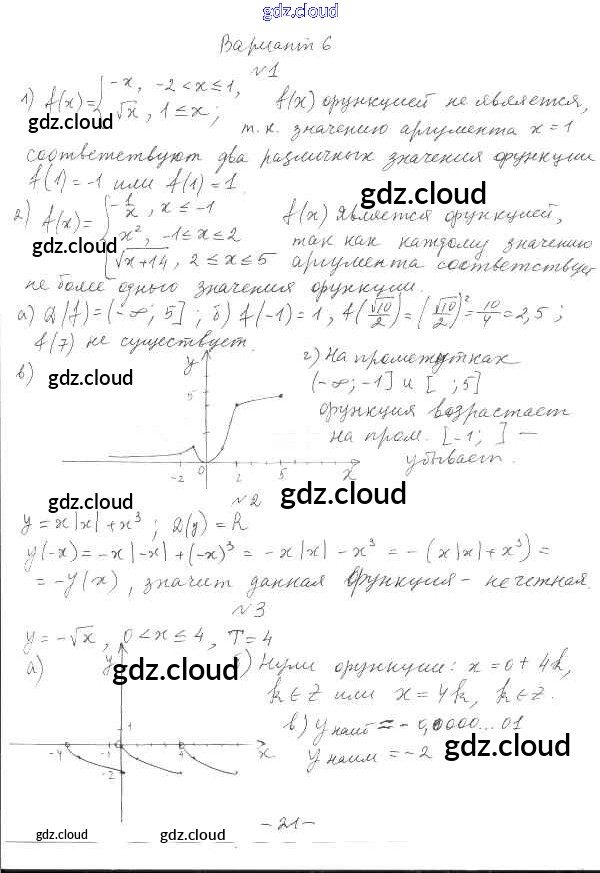 gdz.cloud
Вариант 6
№1
1) f(x)={-x, -2<x≤1,
√x, 1≤x; f(x) функцией не является,
gdz.cloud т.к. значению аргумента x=1
соответствуют два различных значения функции
f(1)=-1 или f(1)=1. gdz.cloud
2) f(x)={-1/x, x≤-1 f(x) является функцией,
gdz.cloud x², -1≤x≤2 так как каждому значению
√x+14, 2≤x≤5 аргумента соответствует
не более одного значения функции.
а) D(f)=(-∞; 5]; б) f(-1)=1, f(√10/2)=(√10/2)²=10/4=2,5;
f(7) не существует.
в) y г) На промежутках
gdz.cloud 5 (-∞;-1] и [ ;5]
gdz.cloud функция возрастает
на пром. [-1; ] —
-2 0 2 5 x убывает.
gdz.cloud №2 gdz.cloud
y=x|x|+x³; D(y)=R
y(-x)=-x|-x|+(-x)³=-x|x|-x³=-(x|x|+x³)=
=-y(x), значит данная функция - нечетная.
№3
y=-√x, 0<x≤4, T=4
а) y gdz.cloud б) Нули функции: x=0+4k,
k∈Z или x=4k, k∈Z.
1 в) y наиб ≈-0,0000...01
-4 -1 4 x y наим =-2 gdz.cloud
-2
gdz.cloud gdz.cloud -21-